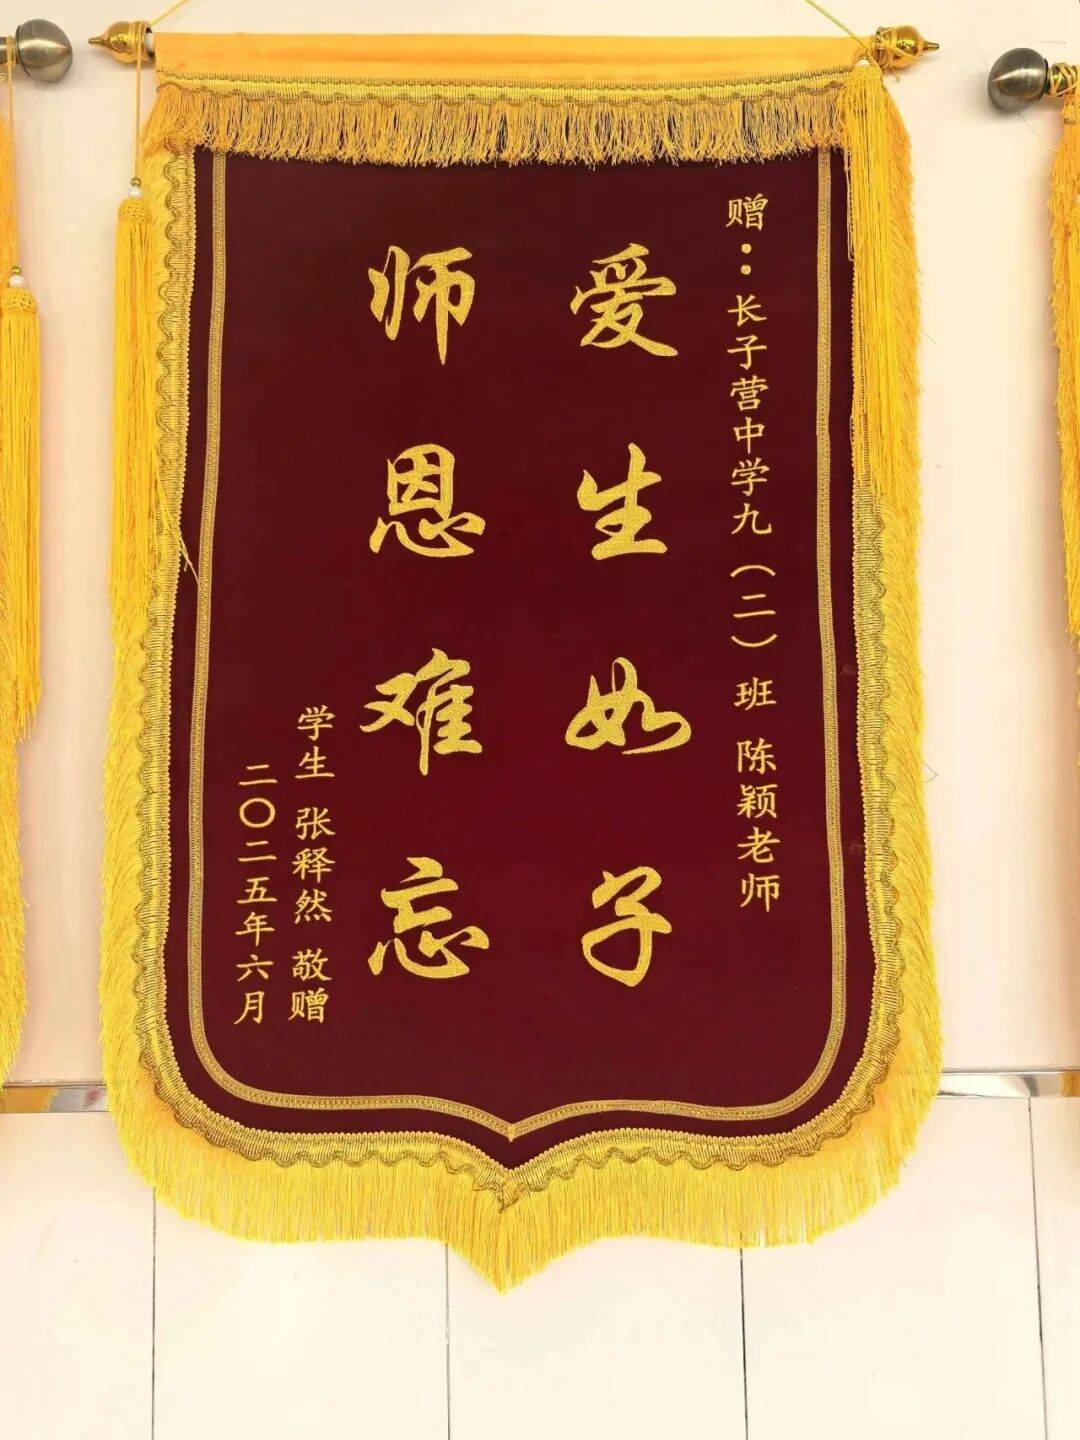 赠：长子营中学九（二）班 陈颖老师
爱生如子
师恩难忘
学生 张释然 敬赠
二〇二五年六月